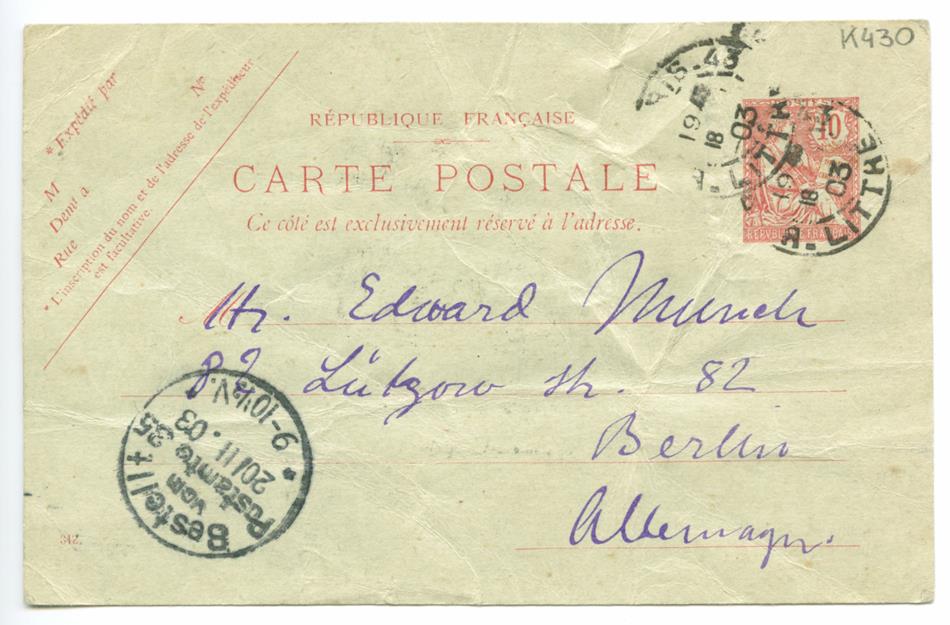 K430
* Expédié par
N°
M
Demt à
Rue
* L'inscription du nom et de l'adresse de l'expéditeur
est facultative.
RÉPUBLIQUE FRANÇAISE
CARTE POSTALE
Ce côté est exclusivement réservé à l'adresse.
10
REPUBLIQUE FRANÇAISE
18
03
R. LITTRE
18
03
R. LITTRE
Hr. Edward Munch
82 Lützow str. 82
Berlin
Allemagne
Bestellt
vom
Postamte 35
20/11.03
9-10½V.
312.